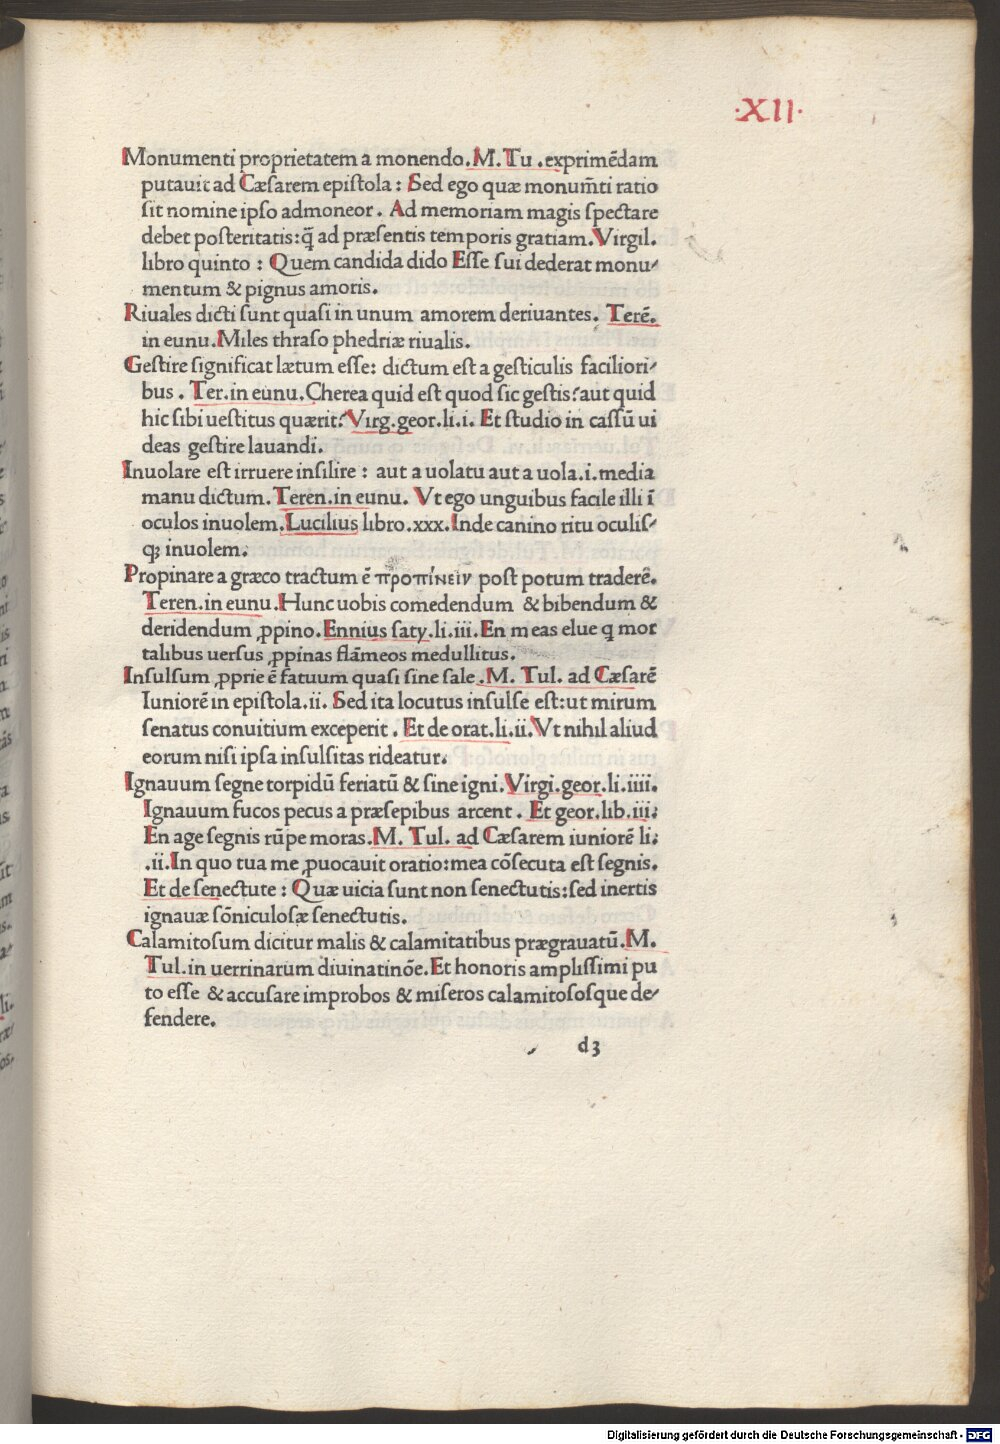 ·XII·
Monumenti proprietatem a monendo. M. Tu . exprimēdam
putauit ad Cæsarem epistola : Sed ego quæ monumēti ratio
sit nomine ipso admoneor . Ad memoriam magis spectare
debet posteritatis: q̄ ad præsentis temporis gratiam. Virgil.
libro quinto : Quem candida dido Esse sui dederat monu⸗
mentum & pignus amoris.
Riuales dicti sunt quasi in unum amorem deriuantes. Terē.
in eunu. Miles thraso phedriæ riualis.
Gestire significat lætum esse: dictum est a gesticulis faciliori⸗
bus . Ter. in eunu. Cherea quid est quod sic gestis? aut quid
hic sibi uestitus quærit? Virg. geor. li. i. Et studio in cassū ui
deas gestire lauandi.
Inuolare est irruere insilire : aut a uolatu aut a uola .i. media
manu dictum. Teren. in eunu. Vt ego unguibus facile illi ī
oculos inuolem. Lucilius libro. xxx. Inde canino ritu oculis⸗
q; inuolem.
Propinare a græco tractum ē προπίνειν post potum traderē.
Teren. in eunu. Hunc uobis comedendum & bibendum &
deridendum ꝓpino. Ennius saty. li. iii. En meas elue q mor
talibus uersus ꝓpinas flāmeos medullitus.
Insulsum ꝓprie ē fatuum quasi sine sale . M. Tul. ad Cæsarē
Iuniorē in epistola. ii. Sed ita locutus insulse est: ut mirum
senatus conuitium exceperit . Et de orat. li. ii. Vt nihil aliud
eorum nisi ipsa insulsitas rideatur.
Ignauum segne torpidū feriatū & sine igni. Virgi. geor. li. iiii.
Ignauum fucos pecus a præsepibus arcent . Et geor. lib. iii.
En age segnis rūpe moras. M. Tul. ad Cæsarem iuniorē li.
.ii. In quo tua me ꝓuocauit oratio: mea cōsecuta est segnis.
Et de senectute : Quæ uicia sunt non senectutis: sed inertis
ignauæ sōniculosæ senectutis.
Calamitosum dicitur malis & calamitatibus prægrauatū. M.
Tul. in uerrinarum diuinatinōe. Et honoris amplissimi pu
to esse & accusare improbos & miseros calamitososque de⸗
fendere.
d3
Digitalisierung gefördert durch die Deutsche Forschungsgemeinschaft - DFG